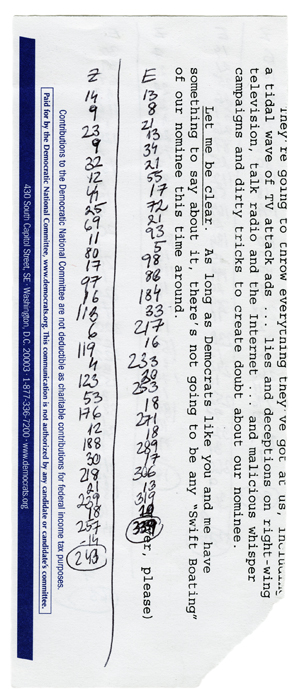 They're going to throw everything they've got at us, including
a tidal wave of TV attack ads ... lies and deceptions on right-wing
television, talk radio and the Internet ... and malicious whisper
campaigns and dirty tricks to create doubt about our nominee.
Let me be clear. As long as Democrats like you and me have
something to say about it, there's not going to be any "Swift Boating"
of our nominee this time around.
er, please)
E
13
8
21
13
34
21
55
17
72
21
93
5
98
86
184
33
217
16
233
20
253
18
271
18
289
17
306
13
319
20
339
Z
14
9
23
9
32
12
44
25
69
11
80
17
97
16
113
6
119
4
123
53
176
12
188
30
218
21
239
18
257
-14
243
Contributions to the Democratic National Committee are not deductible as charitable contributions for federal income tax purposes.
Paid for by the Democratic National Committee, www.democrats.org. This communication is not authorized by any candidate or candidate's committee.
430 South Capitol Street, SE · Washington, D.C. 20003 · 1-877-336-7200 · www.democrats.org